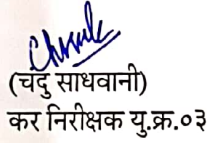 (चंदु साधवानी)
कर निरीक्षक यु.क्र.०३